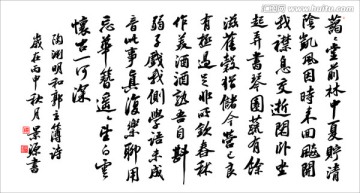 藹〻堂前林中夏貯清
陰凱風因時來回飈開
我襟息交遊閑卧坐
起弄書琴園蔬有餘
滋舊穀猶儲今營己良
有極過足非所欽舂秫
作美酒酒熟吾自斟
弱子戲我側學語未成
音此事真復樂聊用
忘華簪遙〻望白雲
懷古一何深
陶淵明和郭主簿詩
歲在丙申秋月景源書